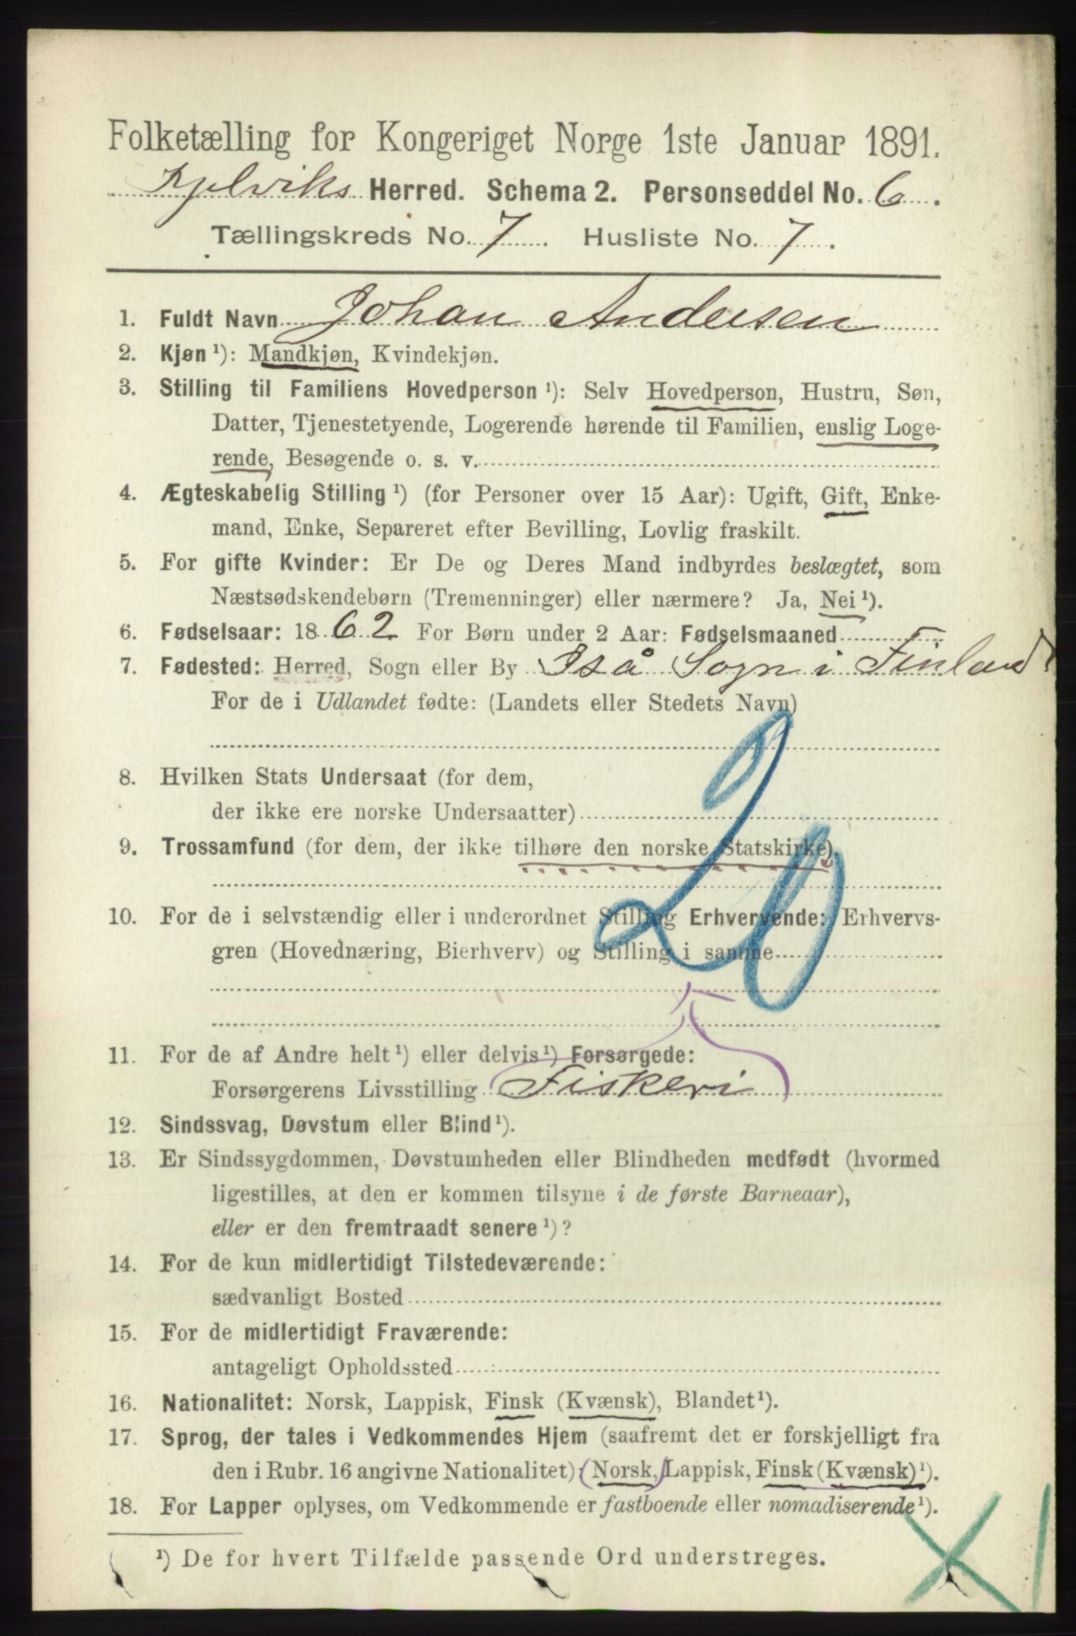 Folketælling for Kongeriget Norge 1ste Januar 1891.
Kjelviks Herred. Schema 2. Personseddel No. 6.
Tællingskreds No. 7. Husliste No. 7.
1. Fuldt Navn Johan Andersen
2. Kjøn ¹): Mandkjøn, Kvindekjøn.
3. Stilling til Familiens Hovedperson ¹): Selv Hovedperson, Hustru, Søn,
Datter, Tjenestetyende, Logerende hørende til Familien, enslig Loge-
rende, Besøgende o. s. v.
4. Ægteskabelig Stilling ¹) (for Personer over 15 Aar): Ugift, Gift, Enke-
mand, Enke, Separeret efter Bevilling, Lovlig fraskilt.
5. For gifte Kvinder: Er De og Deres Mand indbyrdes beslægtet, som
Næstsødskendebørn (Tremenninger) eller nærmere? Ja, Nei ¹).
6. Fødselsaar: 1862 For Børn under 2 Aar: Fødselsmaaned
7. Fødested: Herred, Sogn eller By Iså Sogn i Finland
For de i Udlandet fødte: (Landets eller Stedets Navn)
20
8. Hvilken Stats Undersaat (for dem,
der ikke ere norske Undersaatter)
9. Trossamfund (for dem, der ikke tilhøre den norske Statskirke)
10. For de i selvstændig eller i underordnet Stilling Erhvervende: Erhvervs-
gren (Hovednæring, Bierhverv) og Stilling i samme
11. For de af Andre helt ¹) eller delvis ¹) Forsørgede:
Forsørgerens Livsstilling (Fiskeri)
12. Sindssvag, Døvstum eller Blind ¹).
13. Er Sindssygdommen, Døvstumheden eller Blindheden medfødt (hvormed
ligestilles, at den er kommen tilsyne i de første Barneaar),
eller er den fremtraadt senere ¹)?
14. For de kun midlertidigt Tilstedeværende:
sædvanligt Bosted
15. For de midlertidigt Fraværende:
antageligt Opholdssted
16. Nationalitet: Norsk, Lappisk, Finsk (Kvænsk), Blandet ¹).
17. Sprog, der tales i Vedkommendes Hjem (saafremt det er forskjelligt fra
den i Rubr. 16 angivne Nationalitet): (Norsk,) Lappisk, Finsk (Kvænsk) ¹).
18. For Lapper oplyses, om Vedkommende er fastboende eller nomadiserende ¹).
¹) De for hvert Tilfælde passende Ord understreges.
X1